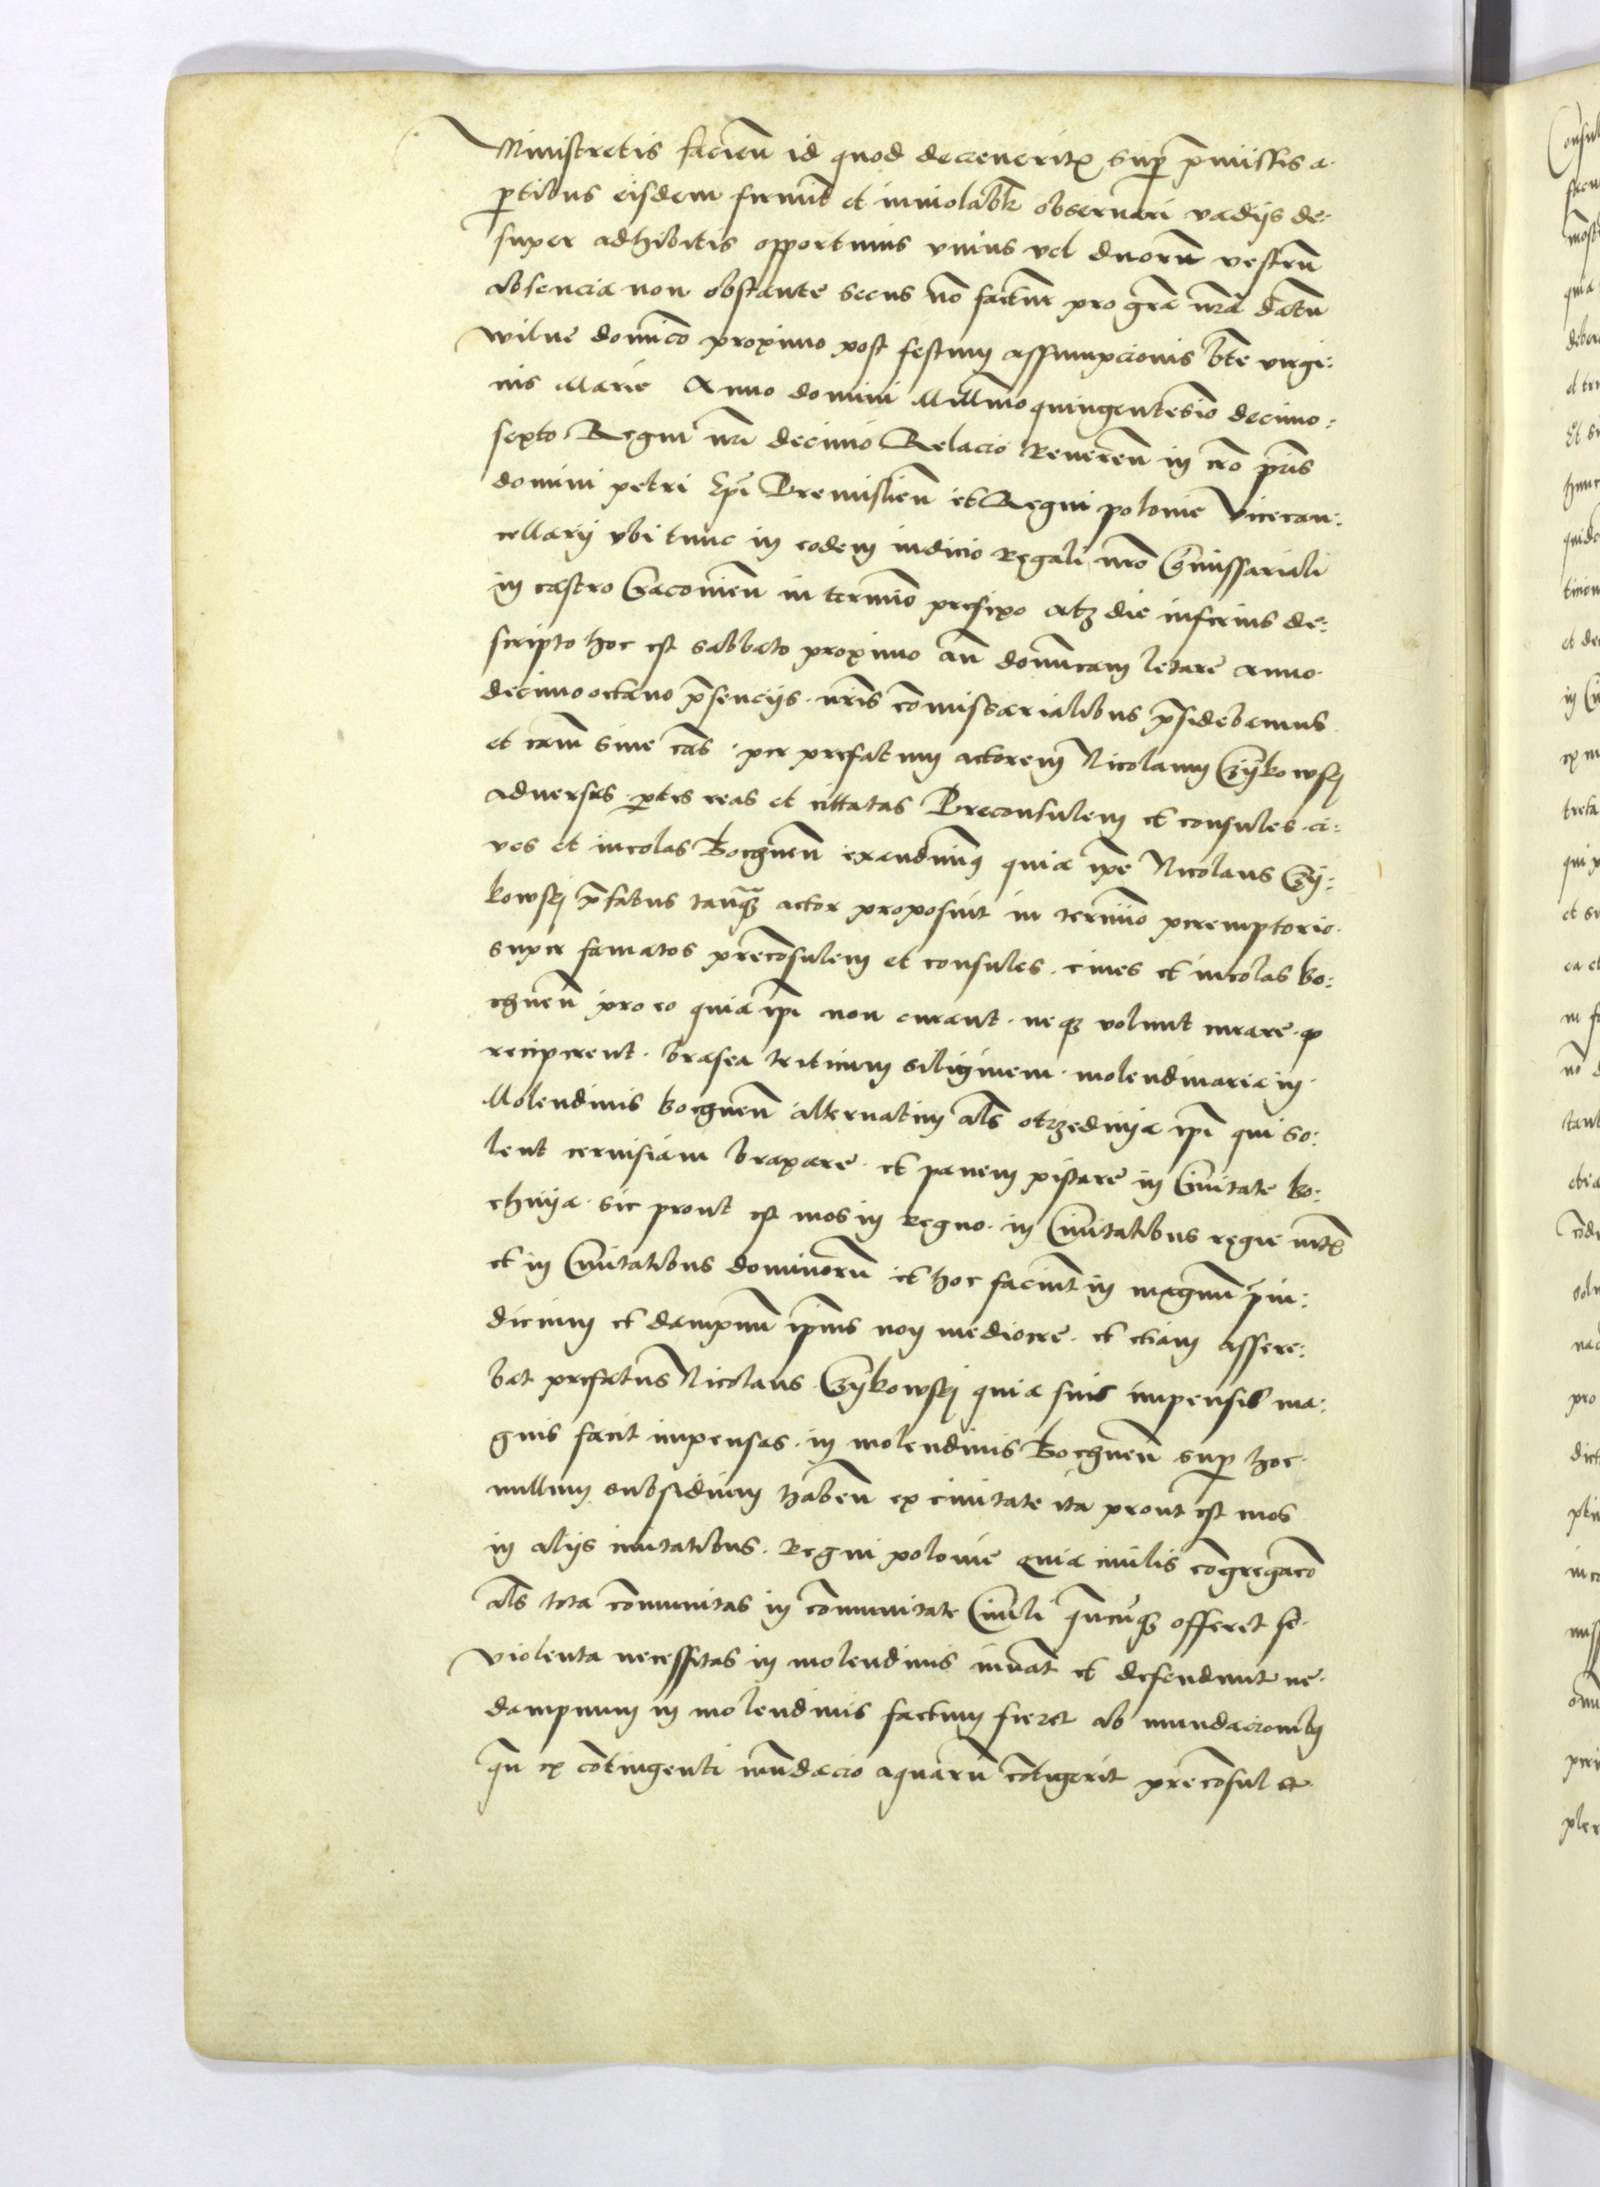 Ministretis facien̄ id quod decreveritꝭ sup̱ p̄missis a
p̱tibus eisdem firmit̄ et inviolabl̄r observari vadijs de:
super adhibitis opportunis unius vel duorū vestrū
absencia non obstante secus nō factur̄ pro gr̄a nr̄a datū
wilne domīco proximo post festum assumpcionis bt̄e virgi:
nis Marie Anno domini Millmōquingentesīo decimo:
sexto Regni nr̄i decimo Relacio Reveren̄ in cr̄o pr̄is
domini petri Ep̄i Premislien̄ et Regni polonie Vicecan:
cellarij ubi tunc in eodem iudicio Regali nr̄o Cōmissariali
in castro Cracovien̄ in termino prefixo atqꝫ die inferius de:
scripto hoc est sabbato proximo an̄ domīcam letare anno
decimooctavo p̄sencijs nr̄is cōmissarialibus p̄sidebamus
et cām sive cās per prefatum actorem Nicolaum Czijkowsкj
adversus p̱tes reas et citatas Preconsulem et consules ci:
ves et incolas Bochnen̄ exaudivimꝯ quia ip̄e Nicolaus Czij:
kowsкj p̄fatus tanqꝫ actor proposuit in termino peremptorio
super famatos precōsulem et consules cives et incolas bo:
chnen̄ pro eo quia ip̄i non curant neqꝫ volunt curare ꝙ
reciperent brasea triticum siliginem molendinaria in
Molendinis bochnen̄ alternatim al̄s otrzedinija ip̄i qui so:
lent cervisiam braxare et panem pistare in Civitate bo:
chnija sic prout est mos in Regno in Civitatibus regie mt̄ꝭ
et in Civitatibus dominorū et hoc faciunt in magnū p̄iu:
dicium et dampnū ip̄ius non mediocre et etiam assere:
bat prefatus Nicolaus Czijkowsкj quia suis impensis ma:
gnis facit impensas in molendinis Bochnen̄ sup̱ hoc
nullum subsidium haben̄ ex civitate ita prout est mos
in alijs civitatibus Regni polonie quia civilis cōgregacō
al̄s tota cōmunitas in cōmunitate Civili qn̄cūqꝫ offeret se
violenta necessitas in molendinis iuvāt et defendunt ne
dampnum in molendinis factum fieret ab inundacionibꝫ
qn̄ ex cōtingenti inūdacio aquarū cōtigerit precōsul et